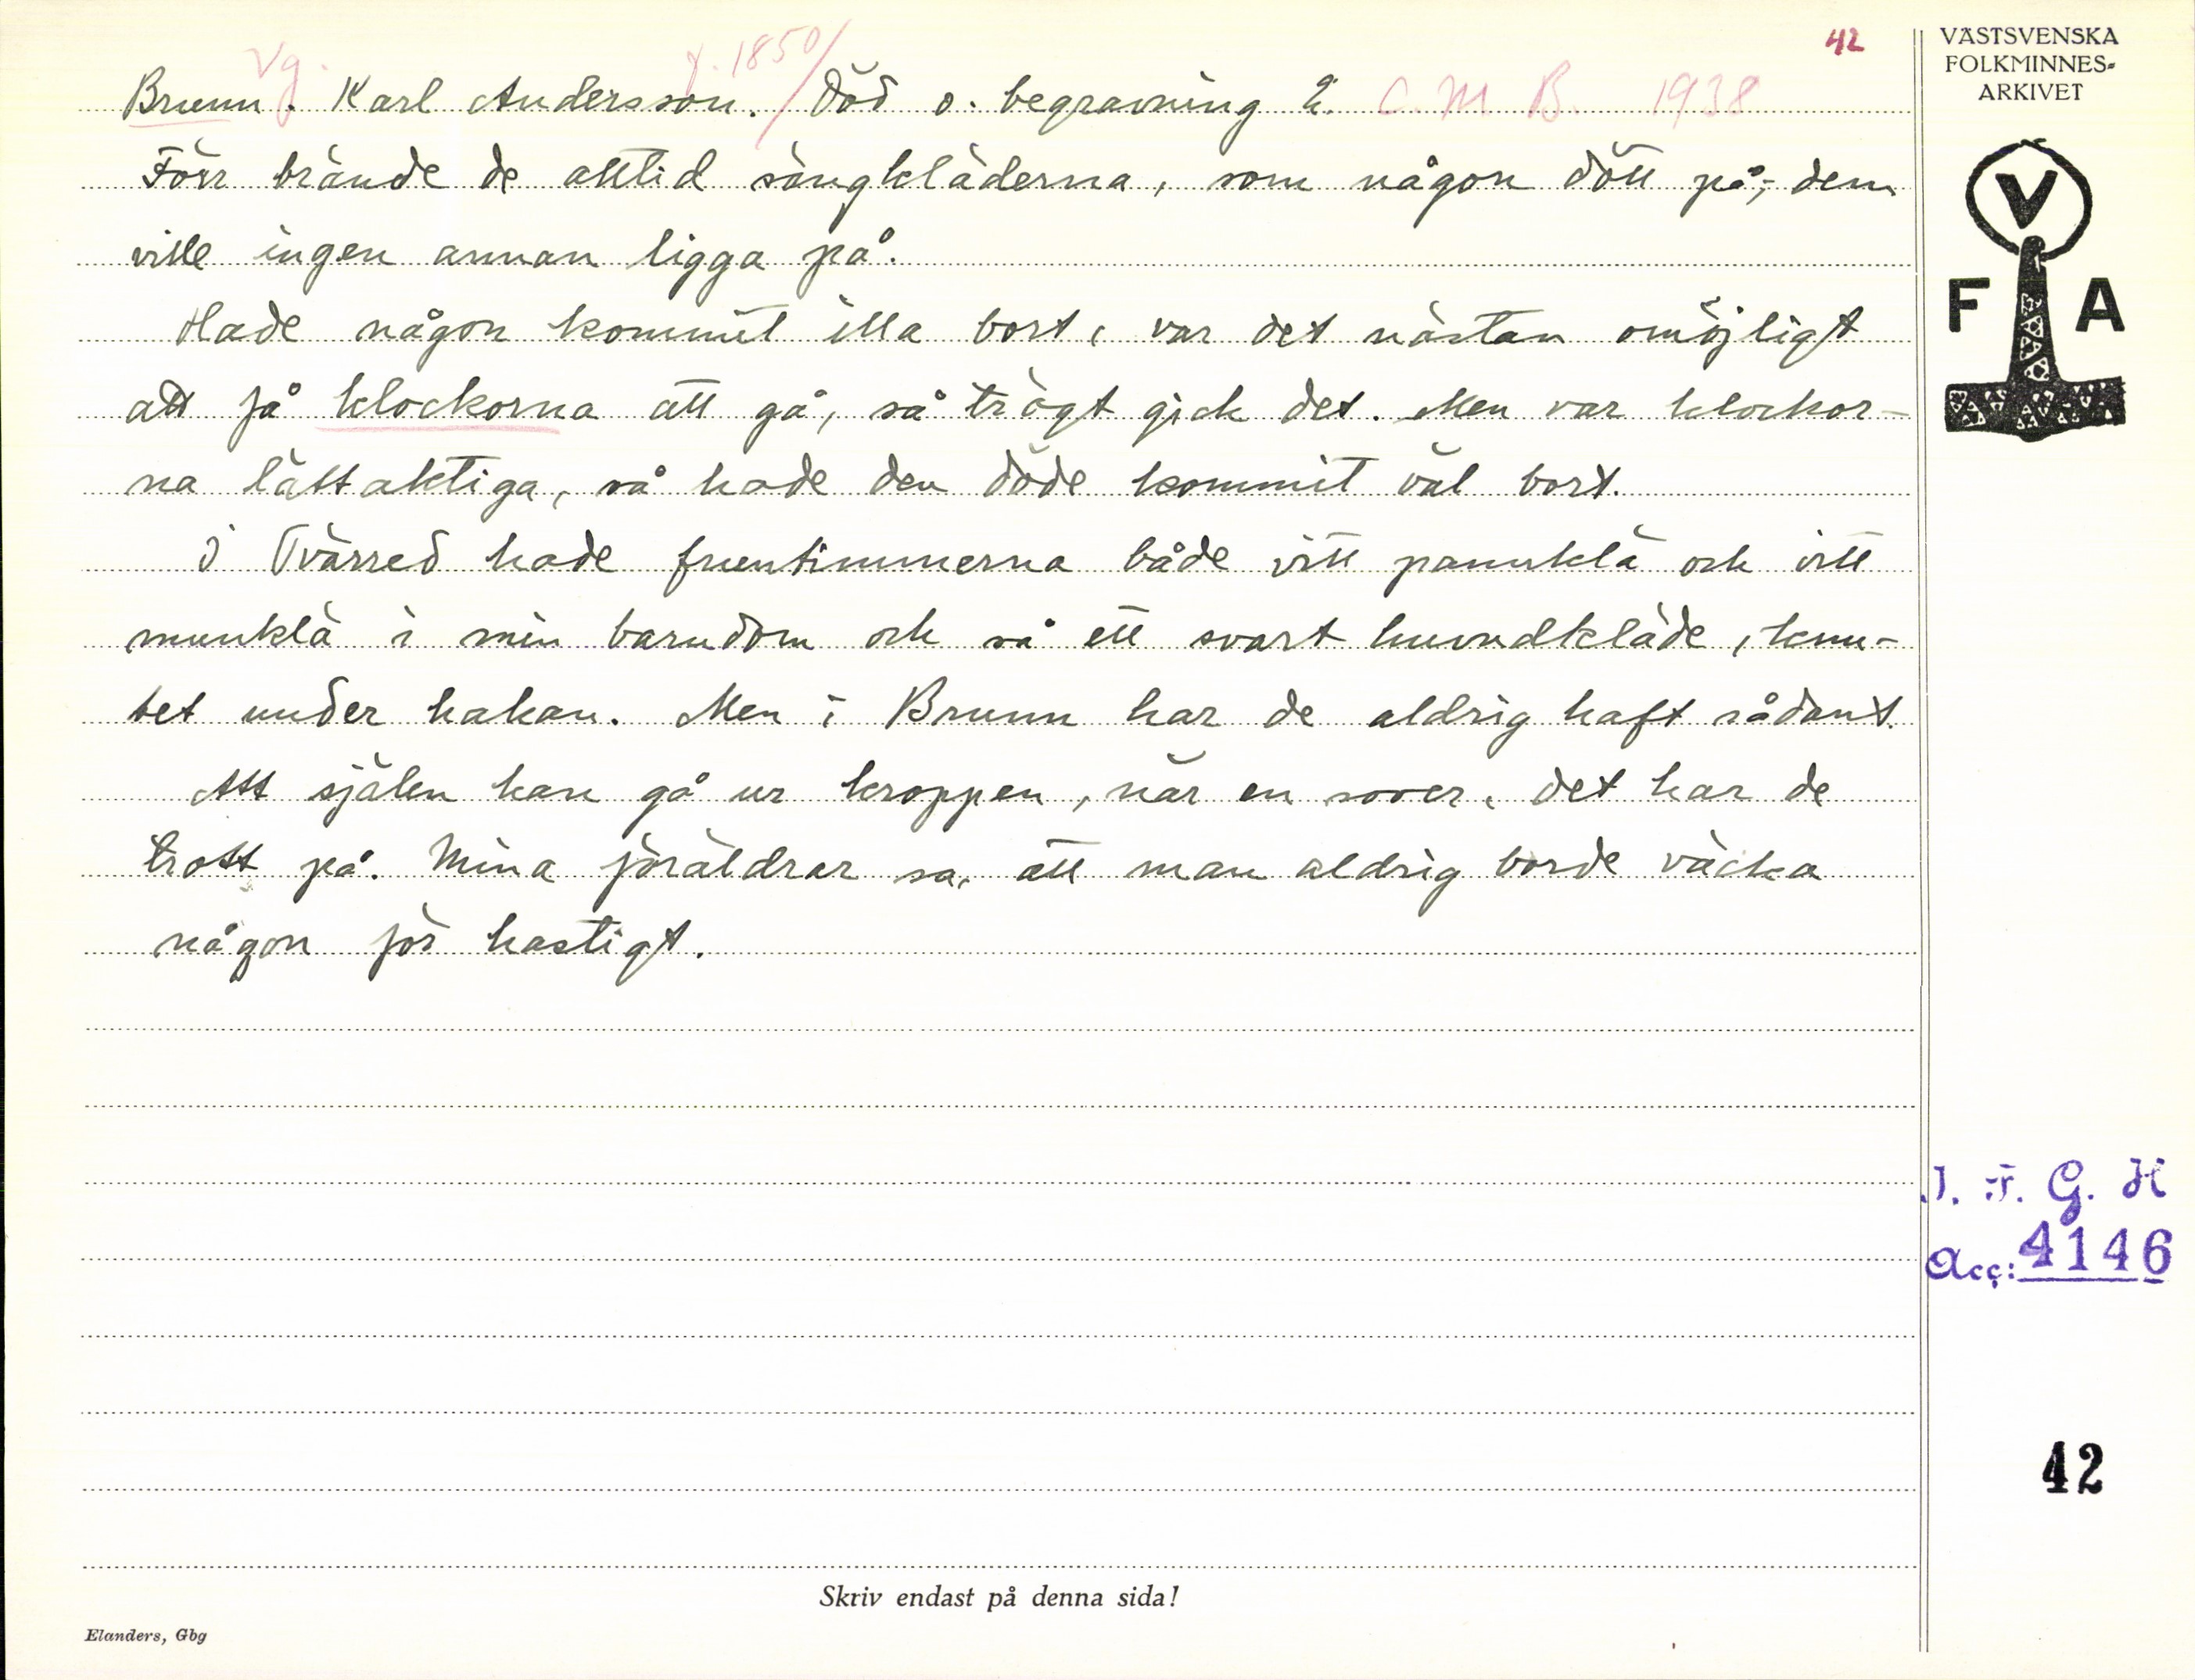 42
Vg. f. 1850/
Brunn. Karl Andersson. Död o. begravning 2. C. M. B. 1938
Förr brände de alltid sängkläderna, som någon dött på, - dem
ville ingen annan ligga på.
Hade någon kommit illa bort, var det nästan omöjligt
att få klockorna att gå, så trögt gick det. Men var klockor-
na lättaktiga, så hade den döde kommit väl bort.
I Tvärred hade fruentimmerna både vitt pannklä och vitt
munklä i min barndom och så ett svart huvudkläde, knu-
tet under hakan. Men i Brunn har de aldrig haft sådant.
Att själen kan gå ur kroppen, när en sover, det har de
trott på. Mina föräldrar sa, att man aldrig borde väcka
någon för hastigt.
Skriv endast på denna sida!
Elanders, Gbg
VÄSTSVENSKA
FOLKMINNES-
ARKIVET
V
F A
I. F. G. H
Acc: 4146
42